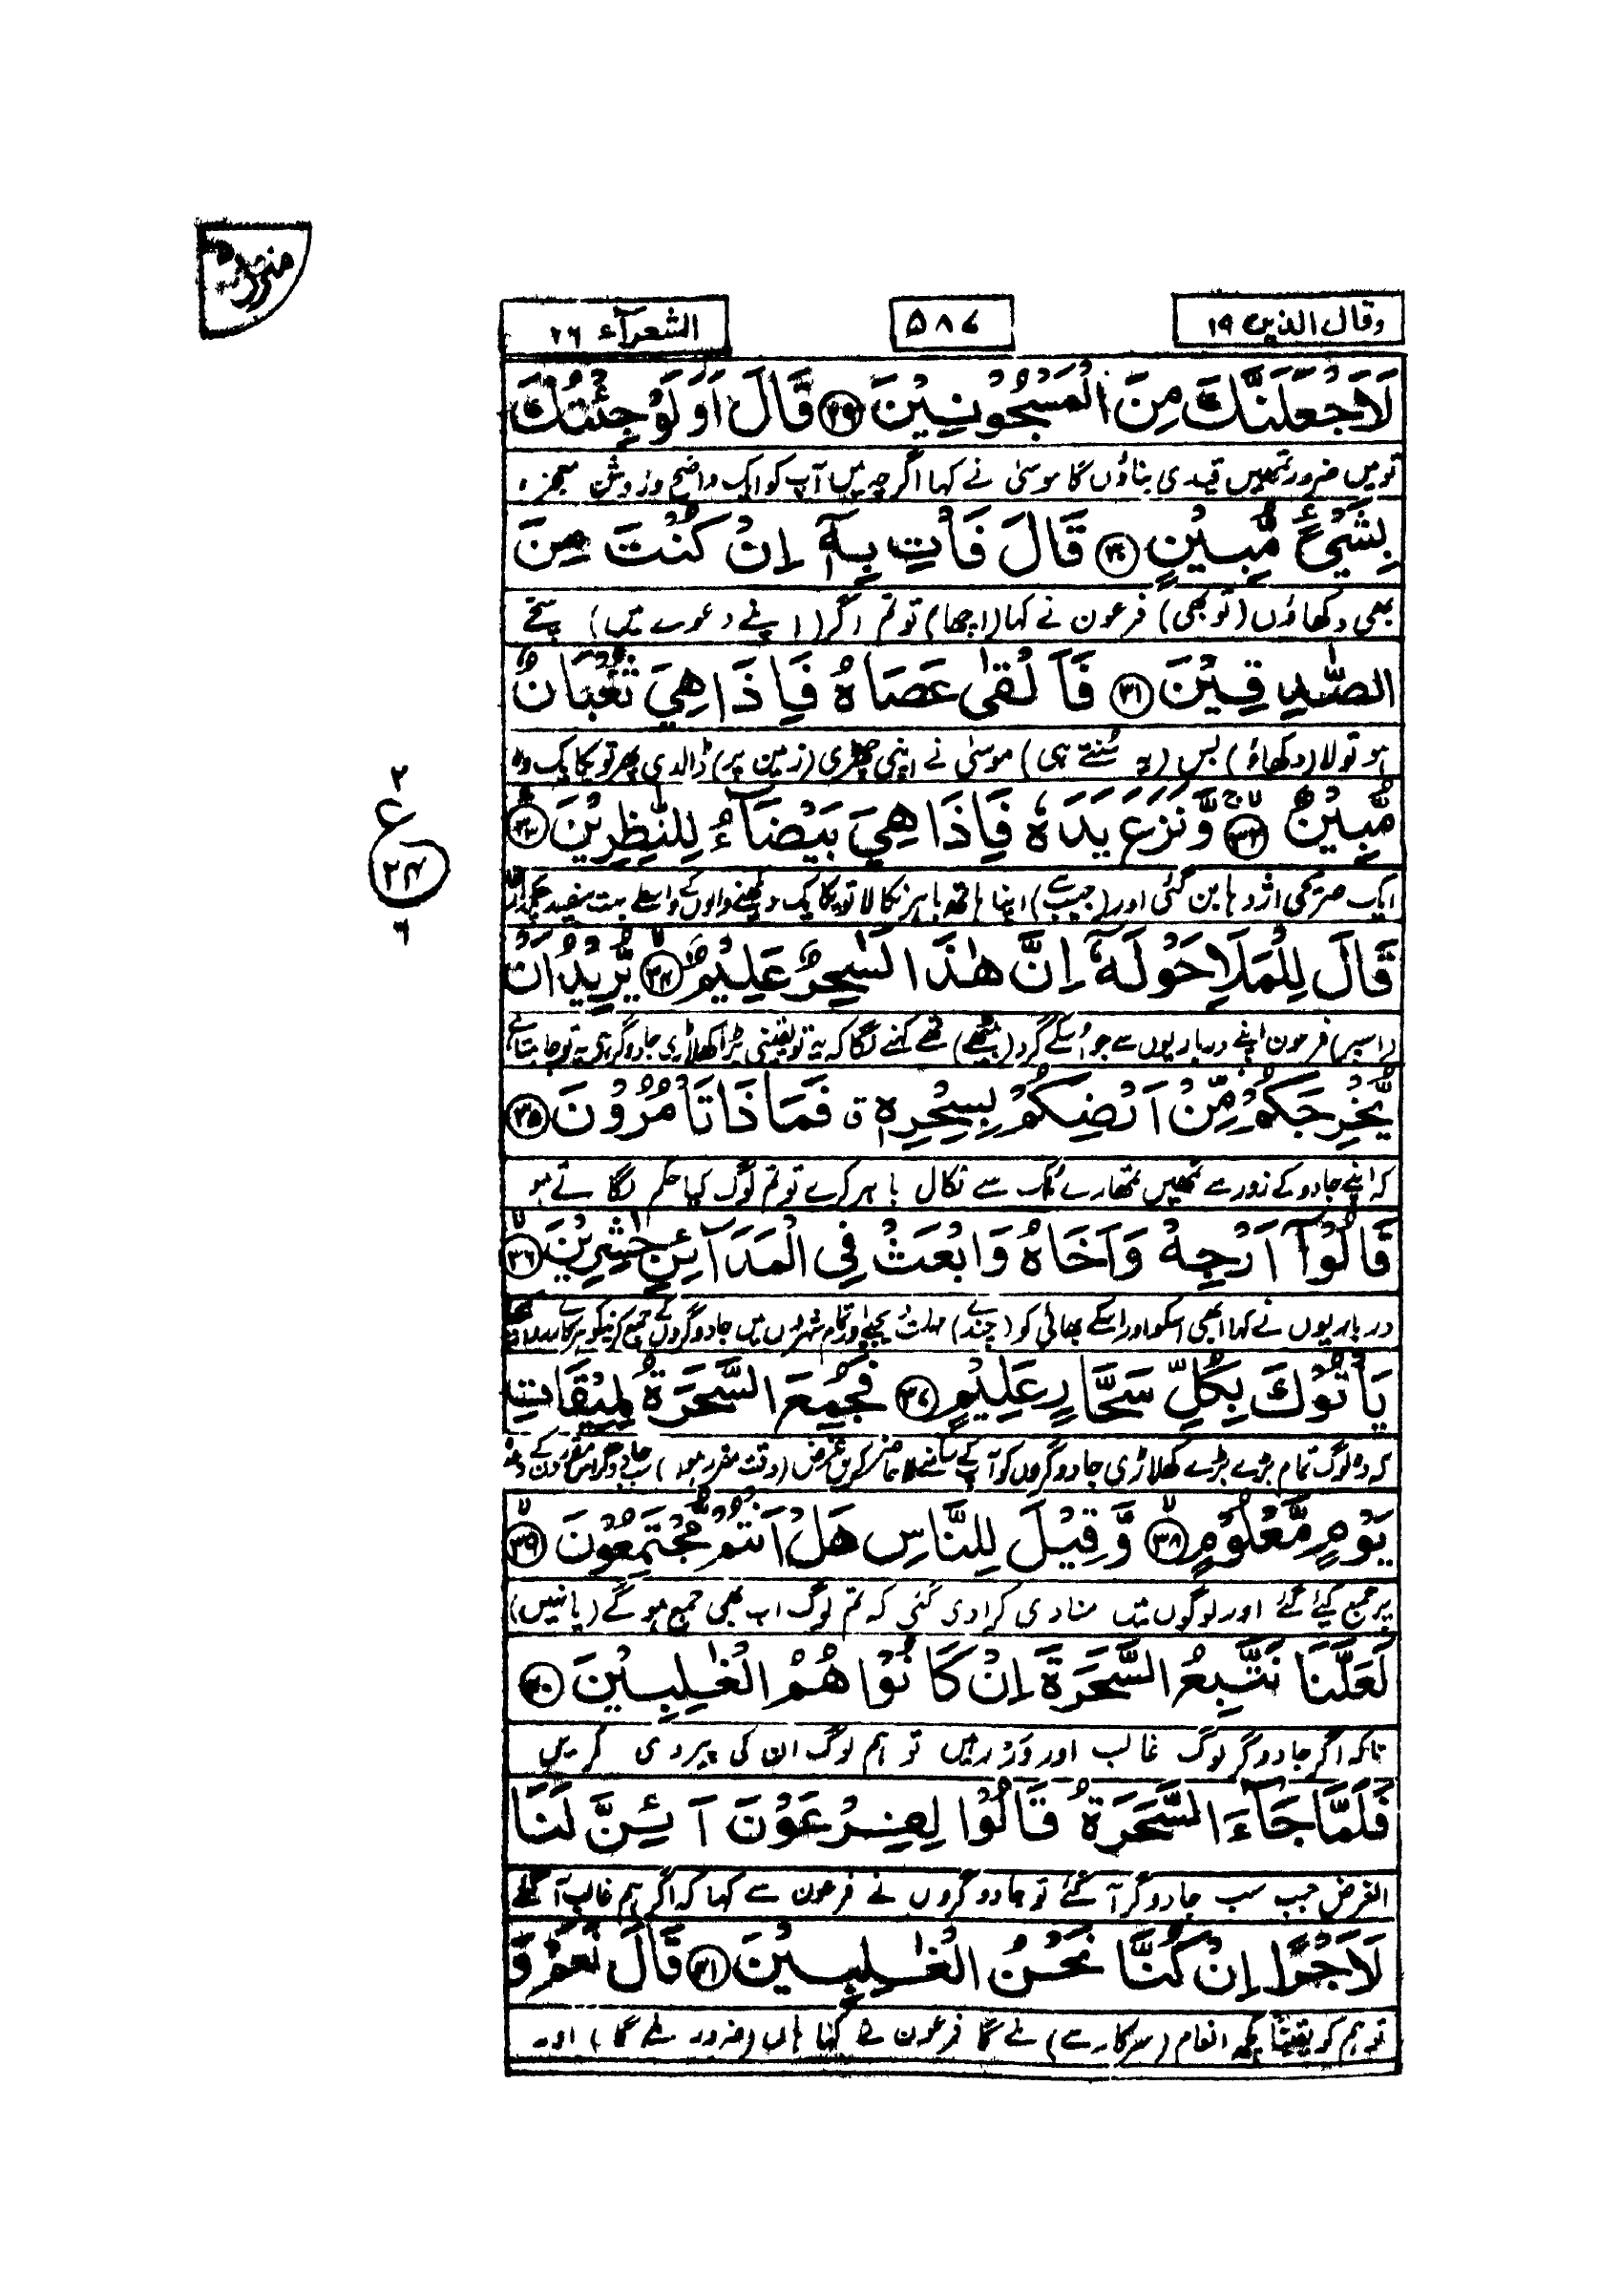 وقال الذین ۱۹
۵۸۷
الشعرآء ۲۶
لَاَجْعَلَنَّكَ مِنَ الْمَسْجُوْنِيْنَ ۲۹ قَالَ اَوَلَوْ جِئْتُكَ
تو میں ضرور تمھیں قیدی بناؤں گا موسیٰ نے کہا اگرچہ میں آپ کو ایک واضح و روشن معجزہ
بِشَيْءٍ مُّبِيْنٍ ۳۰ قَالَ فَاْتِ بِهٖٓ اِنْ كُنْتَ مِنَ
بھی دکھاؤں (تو بھی) فرعون نے کہا (اچھا) تو تم اگر (اپنے دعوے میں) سچّے
الصّٰدِقِيْنَ ۳۱ فَاَلْقٰى عَصَاهُ فَاِذَا هِيَ ثُعْبَانٌ
ہو تو لا (دکھاؤ) بس (یہ سُنتے ہی) موسیٰ نے اپنی چھڑی (زمین پر) ڈالدی پھر تو یکایک وہ
مُّبِيْنٌ ۳۲ وَّنَزَعَ يَدَهٗ فَاِذَا هِيَ بَيْضَآءُ لِلنّٰظِرِيْنَ ۳۳
ایک صریحی اژدہا بن گئی اور (جیب سے) اپنا ہاتھ باہر نکالا تو یکایک دیکھنے والوں کے واسطے بہت سفید چمکدار تھا
قَالَ لِلْمَلَاِ حَوْلَهٗٓ اِنَّ هٰذَا لَسٰحِرٌ عَلِيْمٌ ۳۴ يُّرِيْدُ اَنْ
(اسپر) فرعون اپنے درباریوں سے جو اُسکے گرد (بیٹھے) تھے کہنے لگا کہ یہ تو یقینی بڑا کھلاڑی جادوگر ہے یہ تو چاہتا ہے
يُّخْرِجَكُمْ مِّنْ اَرْضِكُمْ بِسِحْرِهٖ ق فَمَا ذَا تَاْمُرُوْنَ ۳۵
کہ اپنے جادو کے زور سے تمھیں تمھارے ملک سے نکال باہر کرے تو تم لوگ کیا حکم لگاتے ہو
قَالُوْٓا اَرْجِهْ وَاَخَاهُ وَابْعَثْ فِى الْمَدَآئِنِ حٰشِرِيْنَ ۳۶
درباریوں نے کہا ابھی اسکو اور اسکے بھائی کو (چندے) مہلت دیجیے اور تمام شہروں میں جادوگروں کے جمع کرنیکو ہرکارے
يَاْتُوْكَ بِكُلِّ سَحَّارٍ عَلِيْمٍ ۳۷ فَجُمِعَ السَّحَرَةُ لِمِيْقَاتِ
کہ وہ لوگ تمام بڑے بڑے کھلاڑی جادوگروں کو آپ کے سامنے لا حاضر کریں غرض (وقت مقرر ہوا) سب جادوگر اس مقرر دن کے وعدہ
يَوْمٍ مَّعْلُوْمٍ ۳۸ وَّقِيْلَ لِلنَّاسِ هَلْ اَنْتُمْ مُّجْتَمِعُوْنَ ۳۹
پر جمع کیے گئے اور لوگوں میں منادی کرادی گئی کہ تم لوگ اب بھی جمع ہوگے (یا نہیں)
لَعَلَّنَا نَتَّبِعُ السَّحَرَةَ اِنْ كَانُوْا هُمُ الْغٰلِبِيْنَ ۴۰
تاکہ اگر جادوگر لوگ غالب اور وَر رہیں تو ہم لوگ ان کی پیروی کریں
فَلَمَّا جَآءَ السَّحَرَةُ قَالُوْا لِفِرْعَوْنَ اَئِنَّ لَنَا
الغرض جب سب جادوگر آگئے تو جادوگروں نے فرعون سے کہا کہ اگر ہم غالب آگئے
لَاَجْرًا اِنْ كُنَّا نَحْنُ الْغٰلِبِيْنَ ۴۱ قَالَ نَعَمْ وَ
تو ہم کو یقیناً کچھ انعام (سرکار سے) ملے گا فرعون نے کہا ہاں (ضرور ملے گا) اور
۲
ع
۲۴
۶